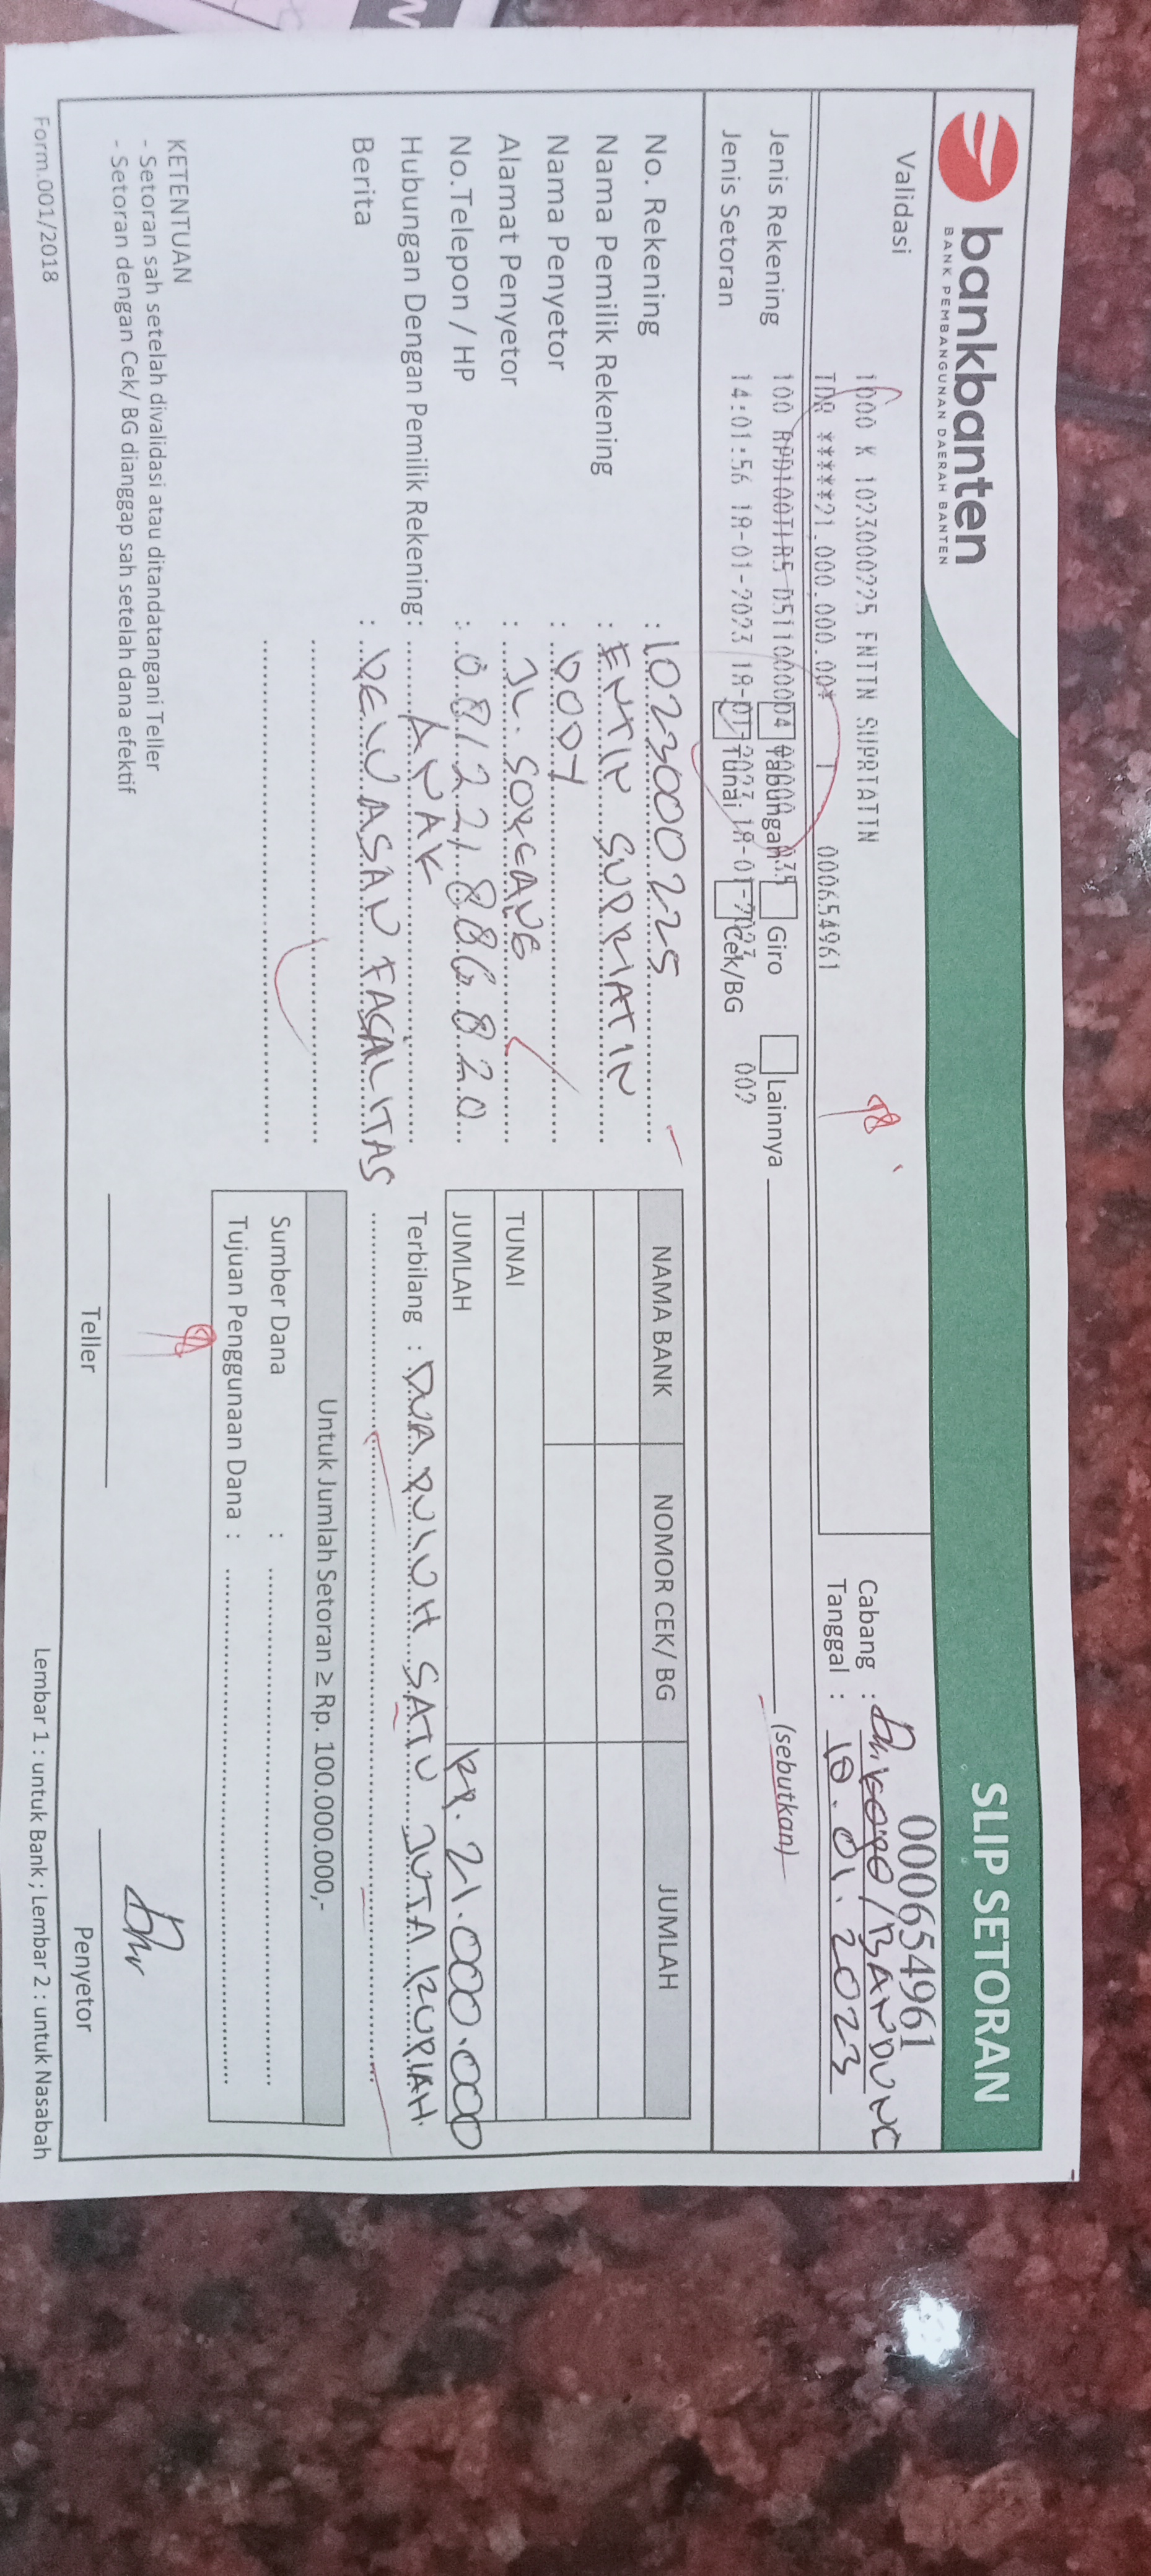 bankbanten
BANK PEMBANGUNAN DAERAH BANTEN
SLIP SETORAN
000654961
Validasi
1000 K 1023000225 ENTIN SUPRIATIN
IDR ******21.000.000.00* 1 000654961
Cabang :
/BANDUNG
Tanggal : 18.01.2023
Jenis Rekening
Tabungan
Giro
Lainnya
(sebutkan)
Jenis Setoran
14:01:56 18-01-2023 18-01-2023 18-01-2023 002
Tunai
Cek/BG
No. Rekening : 1023000225
Nama Pemilik Rekening : ENTIN SUPRIATIN
Nama Penyetor : DODY
Alamat Penyetor : JL. SOREANG
No.Telepon / HP : 081221886820
Hubungan Dengan Pemilik Rekening: ANAK
Berita :
FASALITAS
NAMA BANK NOMOR CEK/ BG JUMLAH
TUNAI
JUMLAH Rp. 21.000.000
Terbilang : DUA PULUH SATU JUTA RUPIAH.
Untuk Jumlah Setoran ≥ Rp. 100.000.000,-
Sumber Dana :
Tujuan Penggunaan Dana :
KETENTUAN
- Setoran sah setelah divalidasi atau ditandatangani Teller
- Setoran dengan Cek/ BG dianggap sah setelah dana efektif
Teller
Penyetor
Form.001/2018
Lembar 1 : untuk Bank ; Lembar 2 : untuk Nasabah